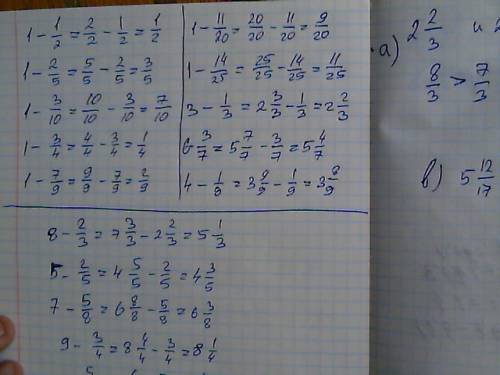 1 - 1/2 = 2/2 - 1/2 = 1/2
1 - 2/5 = 5/5 - 2/5 = 3/5
1 - 3/10 = 10/10 - 3/10 = 7/10
1 - 3/4 = 4/4 - 3/4 = 1/4
1 - 7/9 = 9/9 - 7/9 = 2/9
1 - 11/20 = 20/20 - 11/20 = 9/20
1 - 14/25 = 25/25 - 14/25 = 11/25
3 - 1/3 = 2 3/3 - 1/3 = 2 2/3
6 3/7 = 5 7/7 - 3/7 = 5 4/7
4 - 1/9 = 3 9/9 - 1/9 = 3 8/9
8 - 2/3 = 7 3/3 - 2 2/3 = 5 1/3
5 - 2/5 = 4 5/5 - 2/5 = 4 3/5
7 - 5/8 = 6 8/8 - 5/8 = 6 3/8
9 - 3/4 = 8 4/4 - 3/4 = 8 1/4
а) 2 2/3 и
8/3 > 7/3
в) 5 12/17